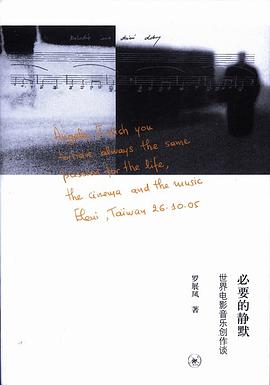 Angelo I wich you
to have always the same
passion for the life,
the cinema and the music
Eleni, Taiwan 26.10.05
必要的静默
世界电影音乐创作谈
罗展凤 著